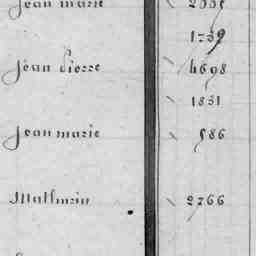 Jean marie 2005
1739
Jean Pierre 4698
1831
Jean marie 586
Mathurin 2766